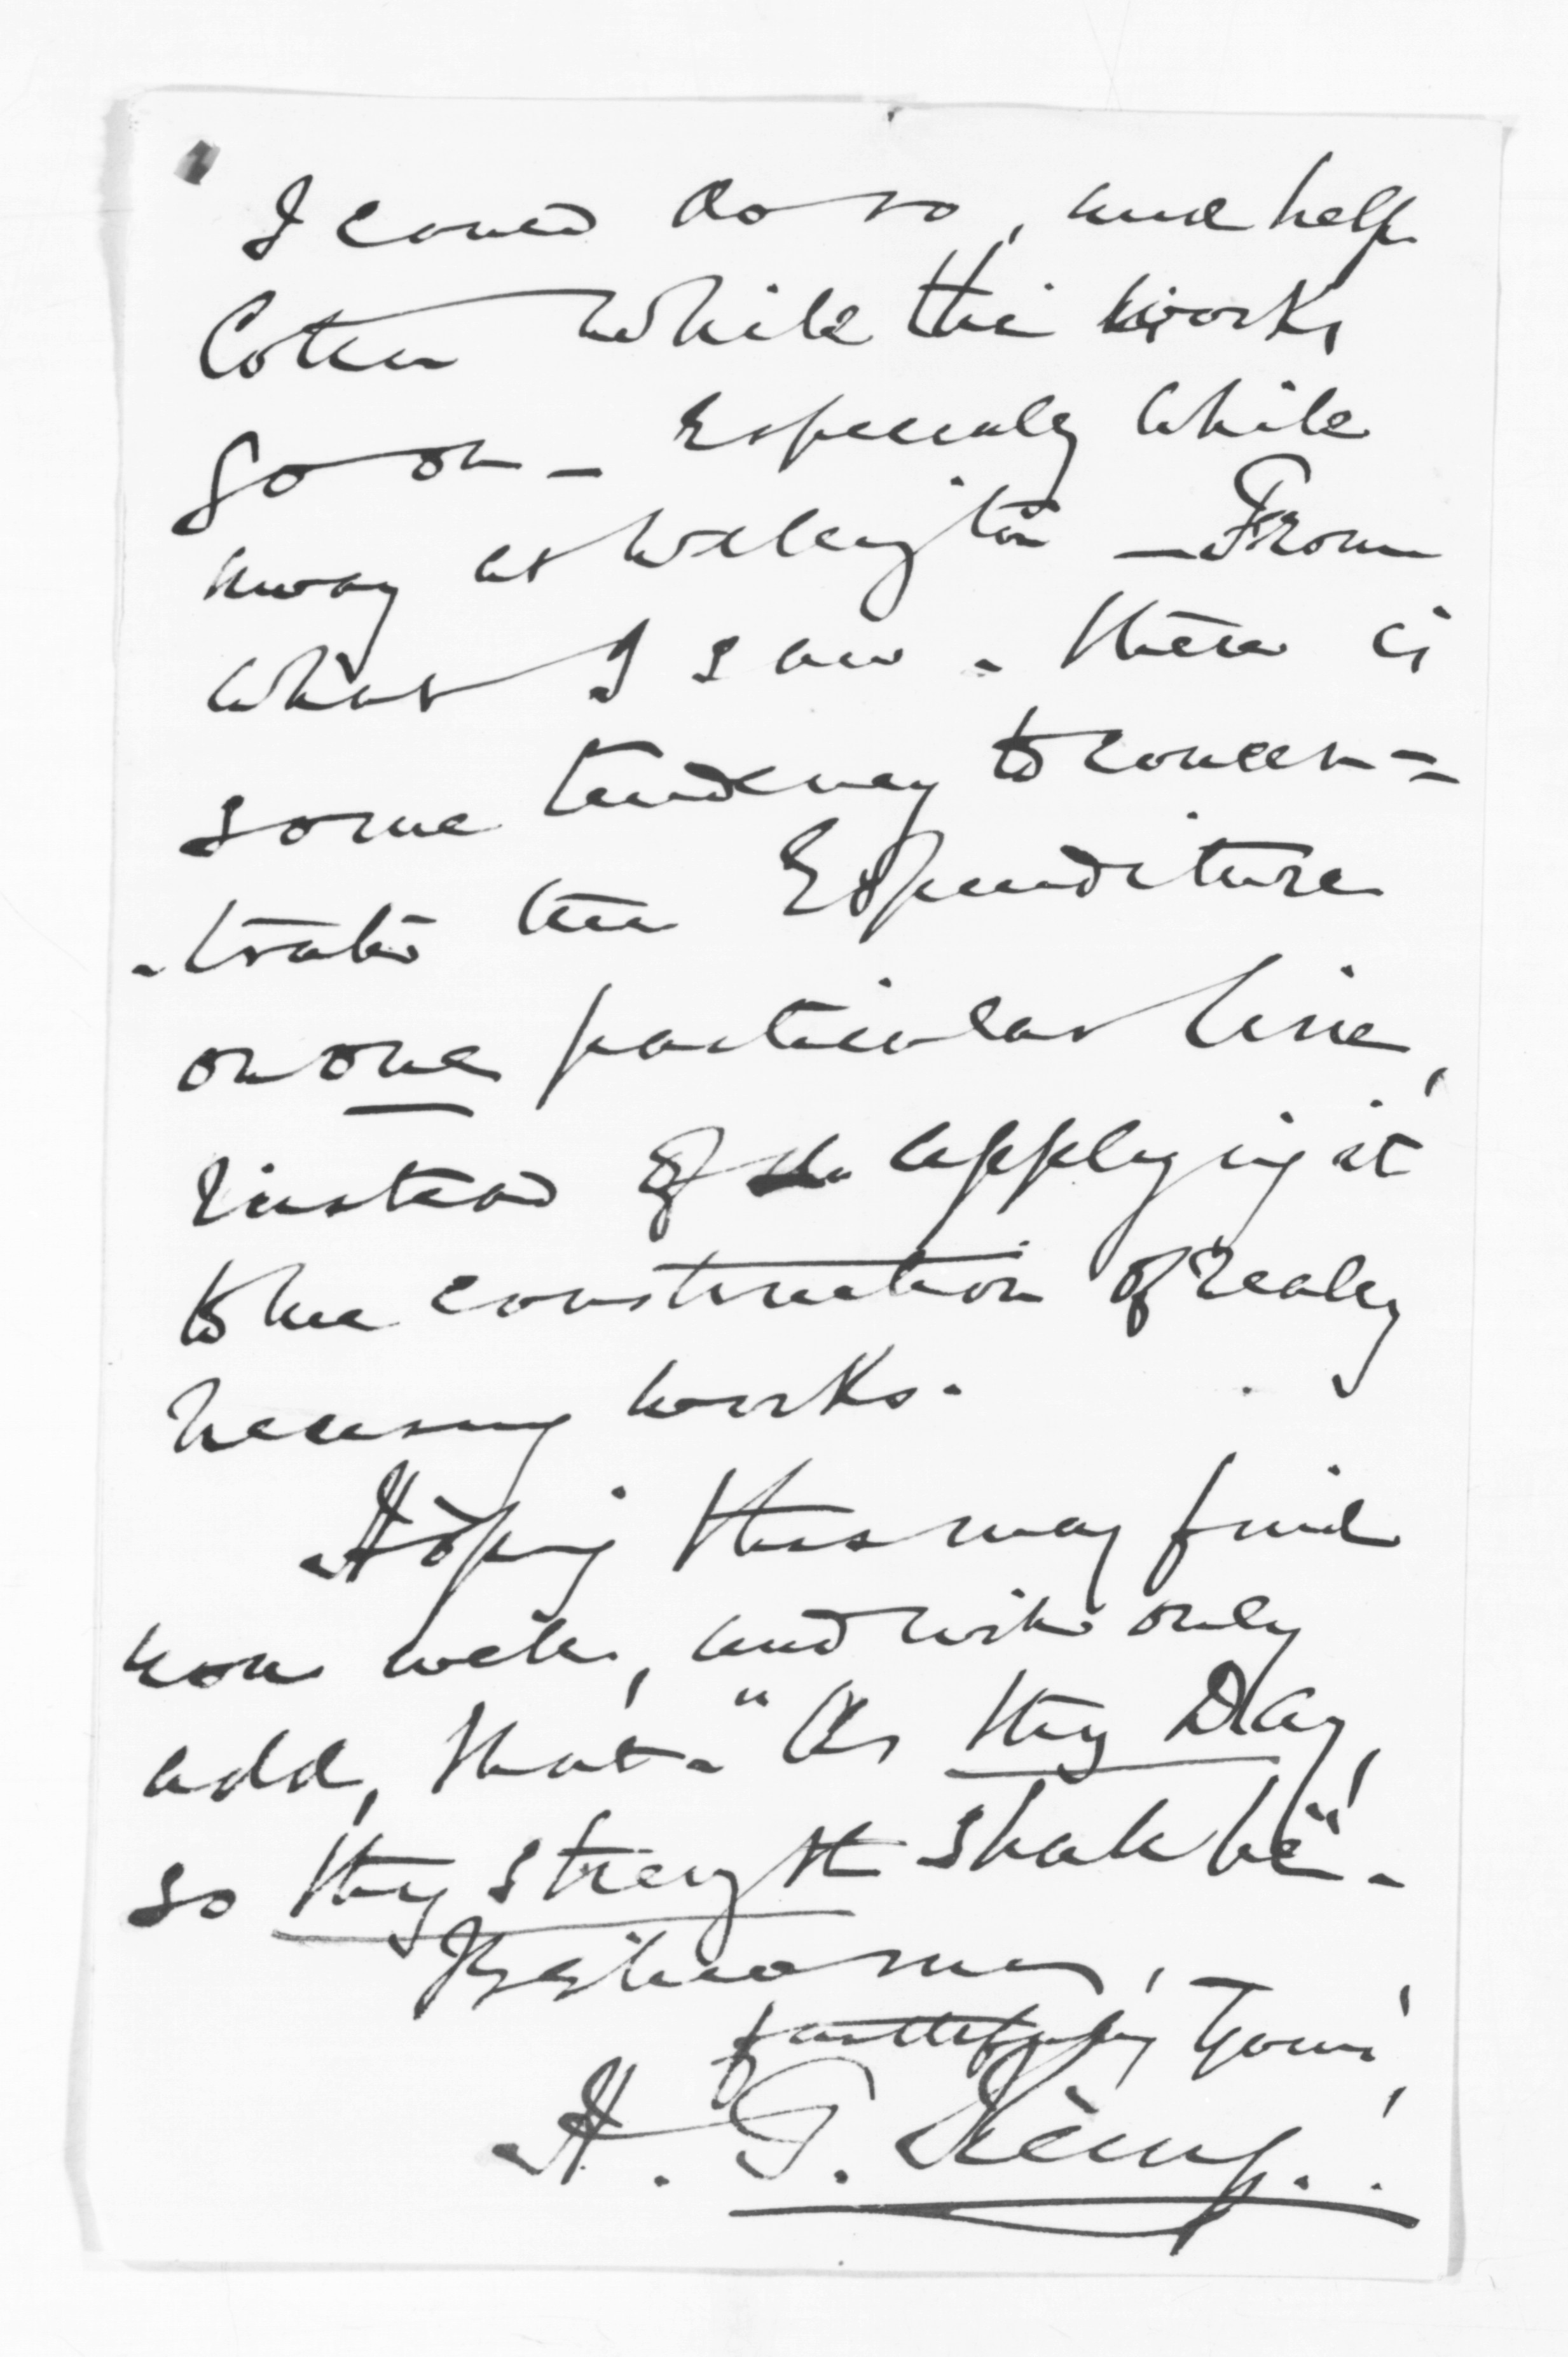 I could do so, and help
Cotter while the works
go on – Especially while
away at Wellington – From
what I saw. there is
some tendency to concen=
-trate the Expenditure
on one particular line,
instead of applying it
to the construction of really
necessary works.
Hoping this may find
you well, and will only
add, that- "As thy Day,
so thy strength shall be".
Believe me,
faithfully Yours,
H. T. Kemp.